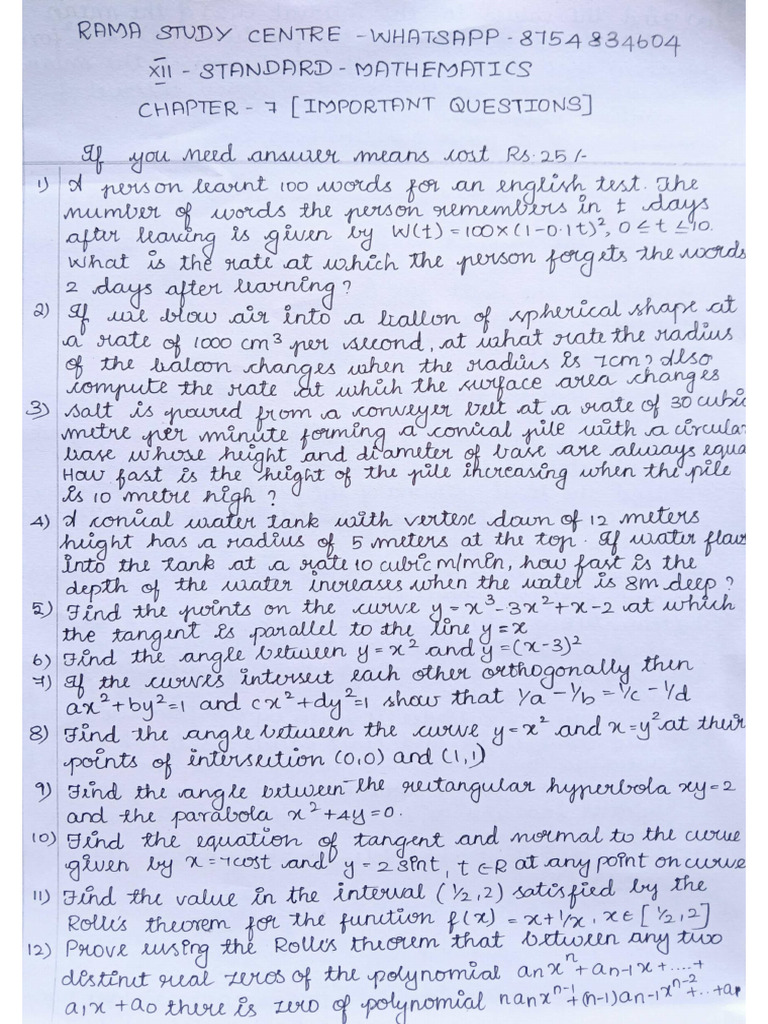 RAMA STUDY CENTRE - WHATSAPP - 8754834604
XII - STANDARD - MATHEMATICS
CHAPTER - 7 [IMPORTANT QUESTIONS]
If you need answer means cost Rs. 25/-
1) A person learnt 100 words for an english test. The
number of words the person remembers in t days
after learing is given by W(t) = 100×(1-0.1t)², 0≤t≤10.
What is the rate at which the person forgets the words
2 days after learning?
2) If we blow air into a ballon of spherical shape at
a rate of 1000 cm³ per second, at what rate the radius
of the baloon changes when the radius is 7cm? Also
compute the rate at which the surface area changes
3) Salt is poured from a conveyer belt at a rate of 30 cubic
metre per minute forming a conical pile with a circular
base whose height and diameter of base are always equa
How fast is the height of the pile increasing when the pile
is 10 metre high?
4) A conical water tank with vertex down of 12 meters
height has a radius of 5 meters at the top. If water flow
into the tank at a rate 10 cubic m/min, how fast is the
depth of the water increases when the water is 8m deep?
5) Find the points on the curve y = x³-3x²+x-2 at which
the tangent is parallel to the line y=x
6) Find the angle between y=x² and y=(x-3)²
7) If the curves intersect each other orthogonally then
ax²+by²=1 and cx²+dy²=1 show that 1/a - 1/b = 1/c - 1/d
8) Find the angle between the curve y=x² and x=y² at their
points of intersection (0,0) and (1,1)
9) Find the angle between the rectangular hyperbola xy=2
and the parabola x²+4y=0.
10) Find the equation of tangent and normal to the curve
given by x=7cost and y=2sint, t∈R at any point on curve
11) Find the value in the interval (1/2,2) satisfied by the
Rolle's theorem for the function f(x) = x+1/x, x∈[1/2,2]
12) Prove using the Rolle's theorem that between any two
distinct real zeros of the polynomial aₙxⁿ+aₙ-1x+....+
a₁x+a₀ there is zero of polynomial naₙxⁿ⁻¹+(n-1)aₙ-1xⁿ⁻²+..+a₁